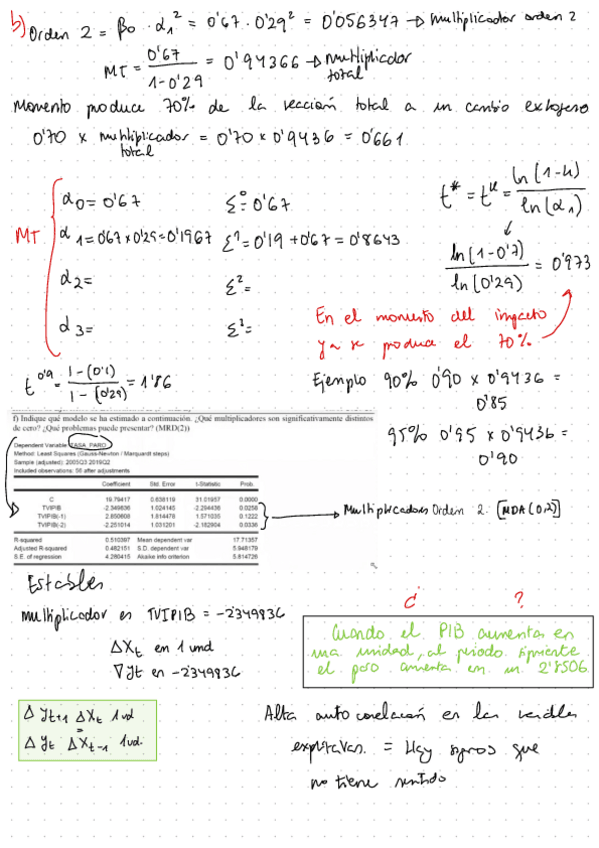 b) Orden 2 = β0 · α1² = 0'67 · 0'29² = 0'056347 → Multiplicador orden 2
MT = 0'67 / 1-0'29 = 0'94366 → Multiplicador total
Momento produce 70% de la reacción total a un cambio exógeno
0'70 x multiplicador total = 0'70 x 0'9436 = 0'661
MT
α0 = 0'67 Σ⁰ = 0'67
α1 = 0'67 x 0'29 = 0'1967 Σ¹ = 0'19 + 0'67 = 0'8643
α2 = Σ² =
α3 = Σ¹ =
t* = t^k = ln(1-k) / ln(α1)
ln(1-0'7) / ln(0'29) = 0'973
En el momento del impacto
ya se produce el 70%
t^0'9 = 1-(0'1) / 1-(0'29) = 1'86
Ejemplo 90% 0'90 x 0'9436 =
0'85
95% 0'95 x 0'9436 =
0'90
f) Indique qué modelo se ha estimado a continuación. ¿Qué multiplicadores son significativamente distintos
de cero? ¿Qué problemas puede presentar? (MRD(2))
Dependent Variable: TASA_PARO
Method: Least Squares (Gauss-Newton / Marquardt steps)
Sample (adjusted): 2005Q3 2019Q2
Included observations: 56 after adjustments
Coefficient Std. Error t-Statistic Prob.
C 19.79417 0.638119 31.01957 0.0000
TVIPIB -2.349836 1.024145 -2.294436 0.0258
TVIPIB(-1) 2.850608 1.814476 1.571035 0.1222
TVIPIB(-2) -2.251014 1.031201 -2.182904 0.0336
R-squared 0.510397 Mean dependent var 17.71357
Adjusted R-squared 0.482151 S.D. dependent var 5.948179
S.E. of regression 4.280415 Akaike info criterion 5.814726
→ Multiplicadores Orden 2. [MDA(0,2)]
Estables
multiplicador es TVIPIB = -2'349836
ΔXt en 1 und
∇Yt en -2'349836
¿ ?
Cuando el PIB aumenta en
una unidad, al periodo siguiente
el paro aumenta en un 2'8506
Δ yt+1 ΔXt 1ud
=
Δ yt ΔXt-1 1ud.
Alta autocorrelación en las variables
explicativas. = Hay signos que
no tiene sentido